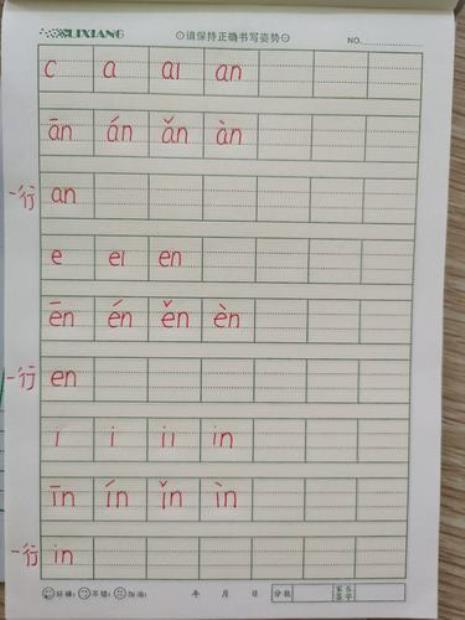 LIXIANG ⊙请保持正确书写姿势⊙ NO.
c a aı an
ān án ǎn àn
一行 an
e eı en
ēn én ěn èn
一行 en
ı i iı in
īn ín ǐn ìn
一行 in
年 月 日 分数 家长签字